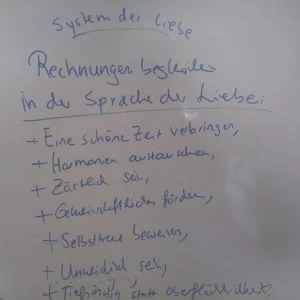 System der Liebe
Rechnungen begleichen
in der Sprache der Liebe:
+ Eine schöne Zeit verbringen,
+ Harmonien austauschen,
+ Zärtlich sein,
+ Gemeinschaftliches fördern,
+ Selbsttreue beweisen,
+ sein,
+ Tiefsinnig statt Oberflüssigkeit,